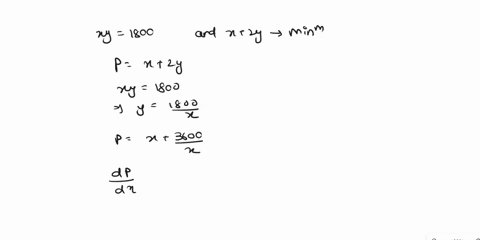 xy = 1800 and x + 2y → minᵐ
P = x + 2y
xy = 1800
⇒ y = 1800/x
P = x + 3600/x
dP/dx